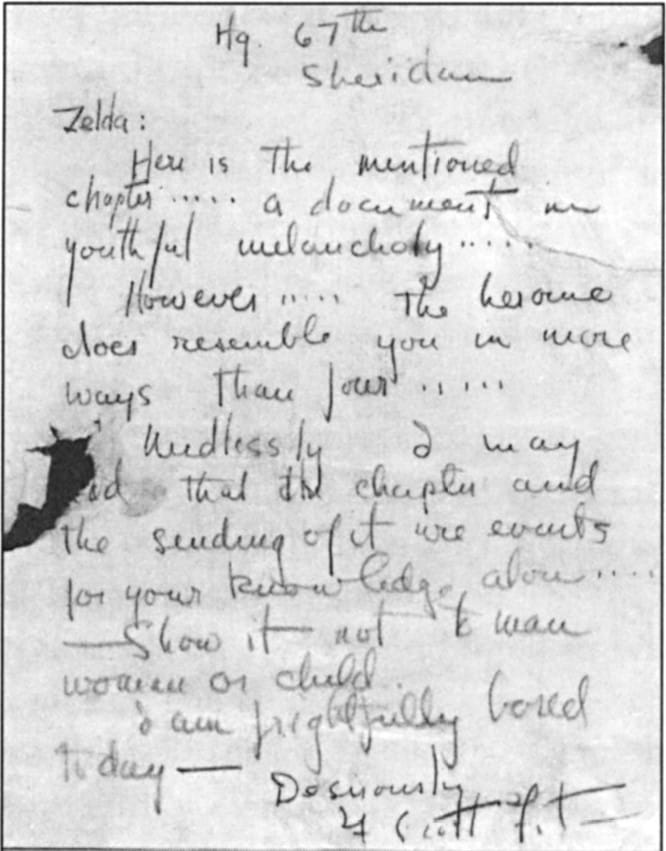 Hq. 67th
Sheridan
Zelda:
Here is the mentioned
chapter ..... a document in
youthful melancholy .....
However ..... the heroine
does resemble you in more
ways than four .....
Needlessly I may
add that the chapter and
the sending of it are events
for your knowledge alone .....
— Show it not to man
woman or child.
I am frightfully bored
today —
Desirously
F Scott Fit—